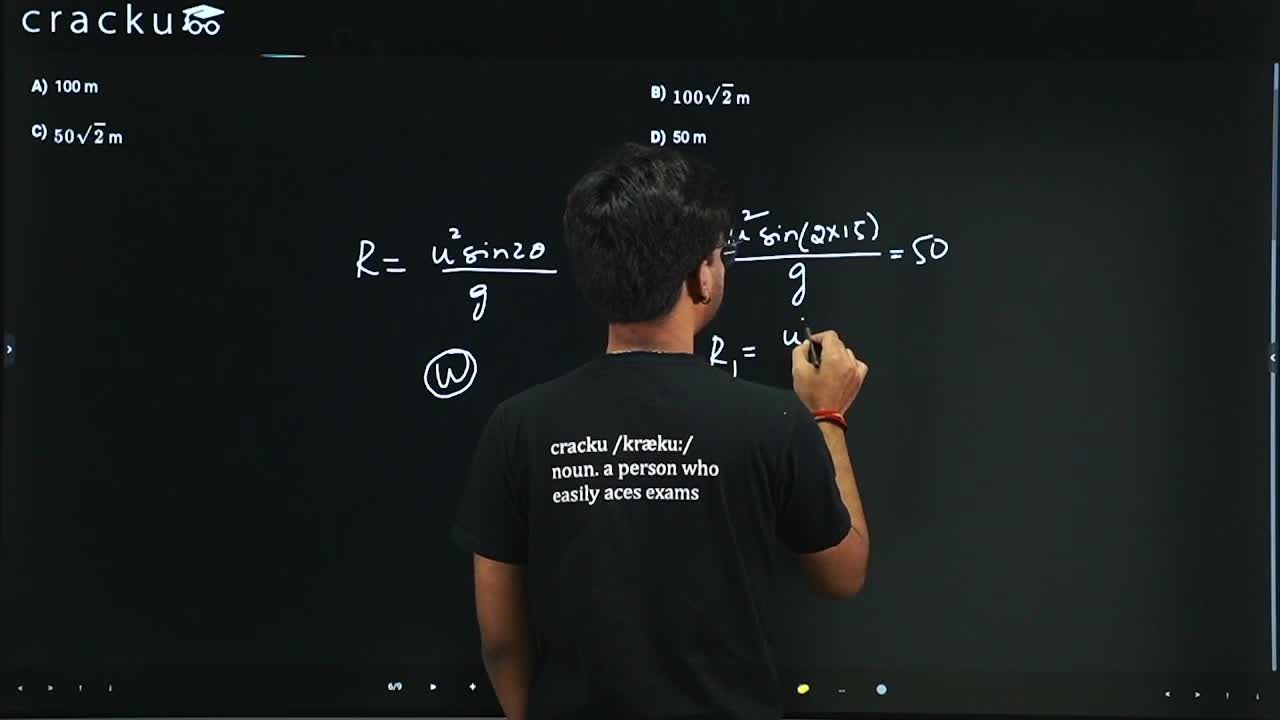 cracku
A) 100 m
B) 100√2 m
C) 50√2 m
D) 50 m
R = u² sin2θ / g
u² sin(2×15) / g = 50
R₁ = u
W
cracku /kræku:/
noun. a person who
easily aces exams
6/9